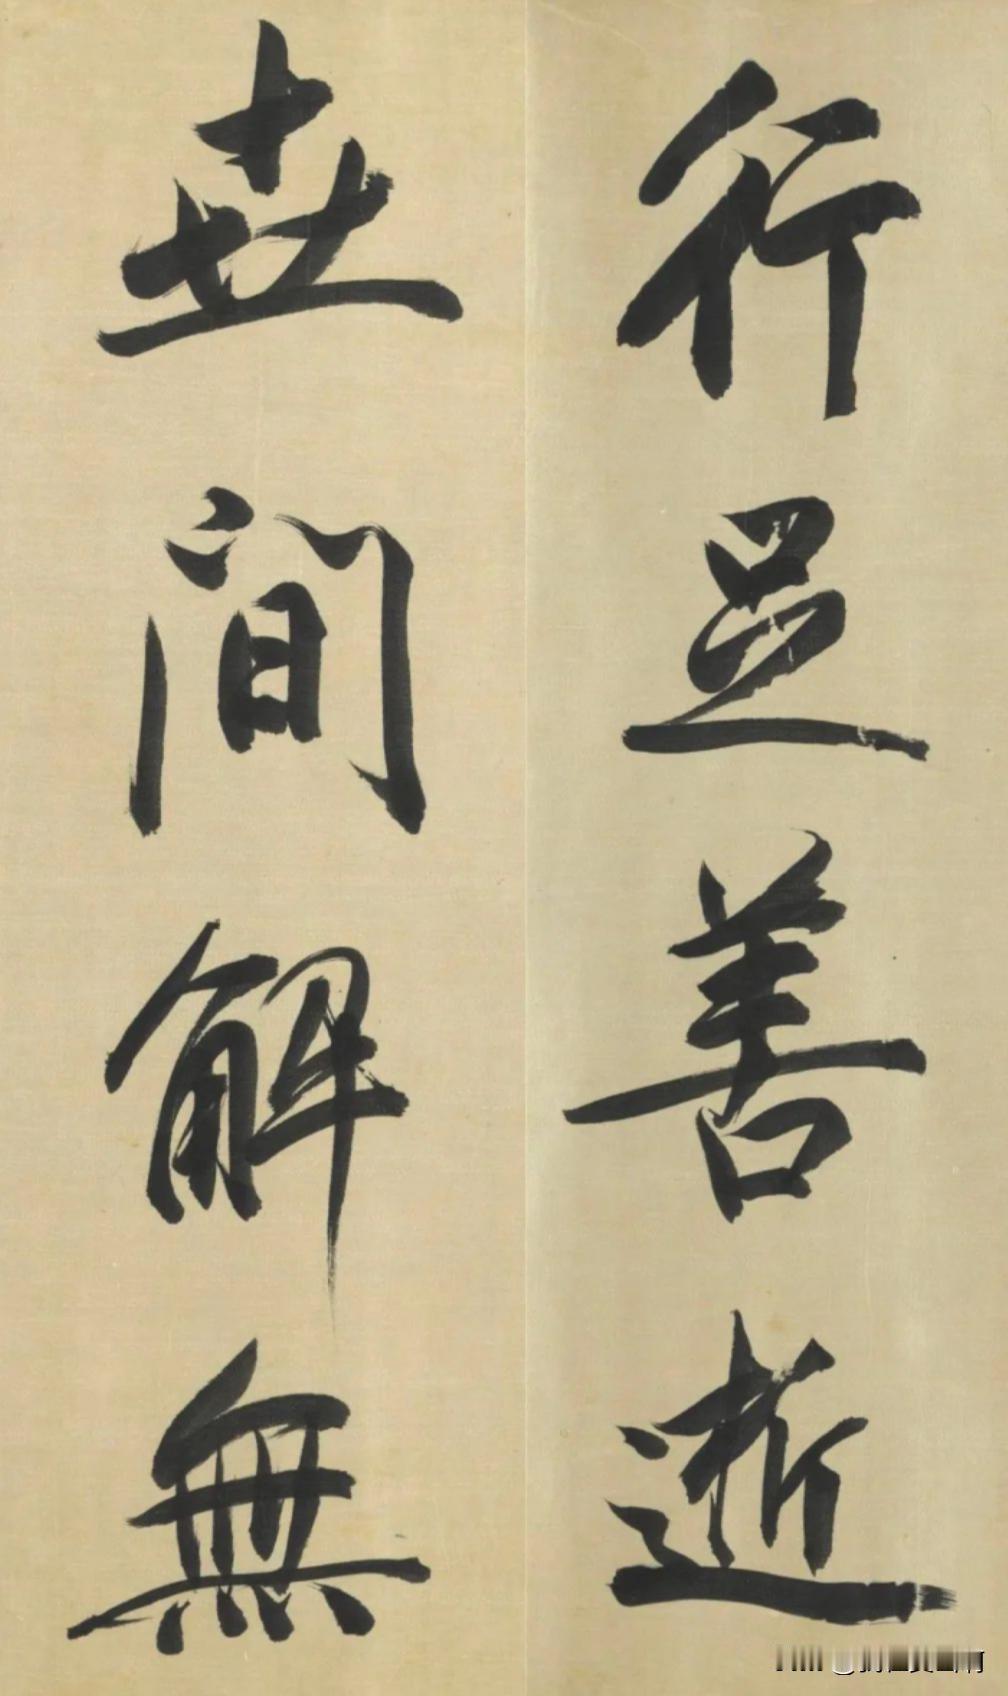 行足善逝
世間解無